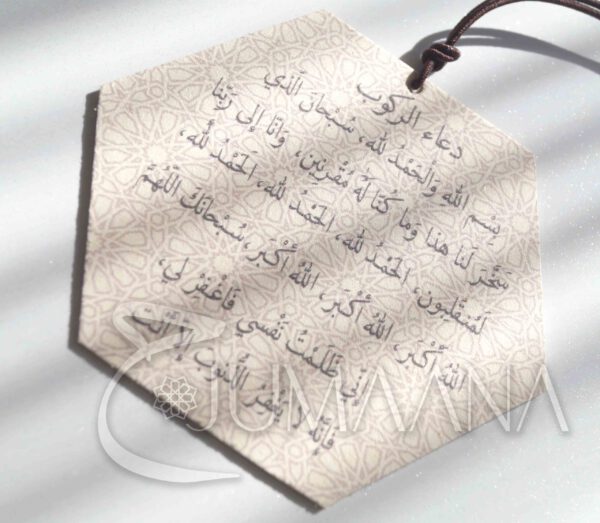 دعاء الركوب
بِسْمِ اللهِ وَالْحَمْدُ لله، سُبْحَانَ الَّذي
سَخَّرَ لَنَا هذا وَما كُنّا لَهُ مُقْرِنِين، وَإنّا إلى رَبِّنا
لَمُنقَلِبون، الحَمْدُ لله، الحَمْدُ لله، الحَمْدُ لله،
اللهُ أكْبَر، اللهُ أكْبَر، اللهُ أكْبَر، سُبْحانَكَ اللّهُمَّ
إنّي ظَلَمْتُ نَفْسي فَاغْفِرْ لي،
فَإنَّهُ لا يَغْفِرُ الذُّنوبَ إلاّ أنْت
JUMAANA